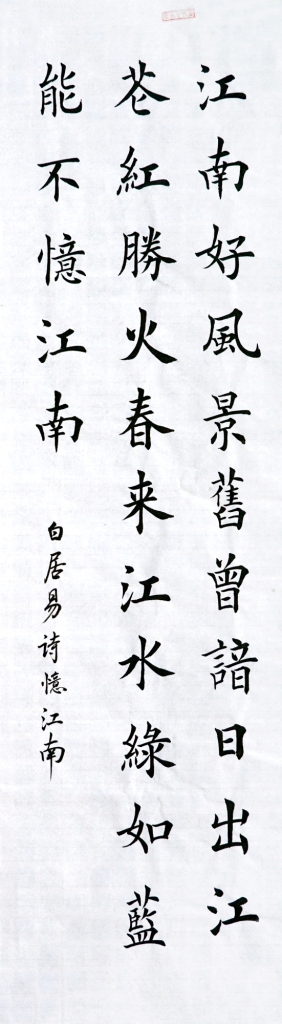 江南好風景舊曾諳日出江
花紅勝火春来江水綠如藍
能不憶江南
白居易诗憶江南